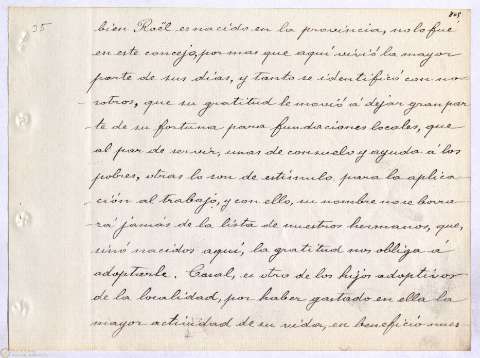 35
805
bien Roël es nacido en la provincia, no lo fue
en este concejo, por mas que aquí vivió la mayor
parte de sus días, y tanto se identificó con no-
sotros, que su gratitud le movió á dejar gran par
te de su fortuna para fundaciones locales, que
al par de servir, unas de consuelo y ayuda á los
pobres, otras lo son de estímulo para la aplica-
ción al trabajo, y con ello, su nombre no se borra
rá jamás de la lista de nuestros hermanos, que,
sinó nacidos aquí, la gratitud nos obliga á
adoptarle. Canal, es otro de los hijos adoptivos
de la localidad, por haber gastado en ella la
mayor actividad de su vida, en beneficio nues-